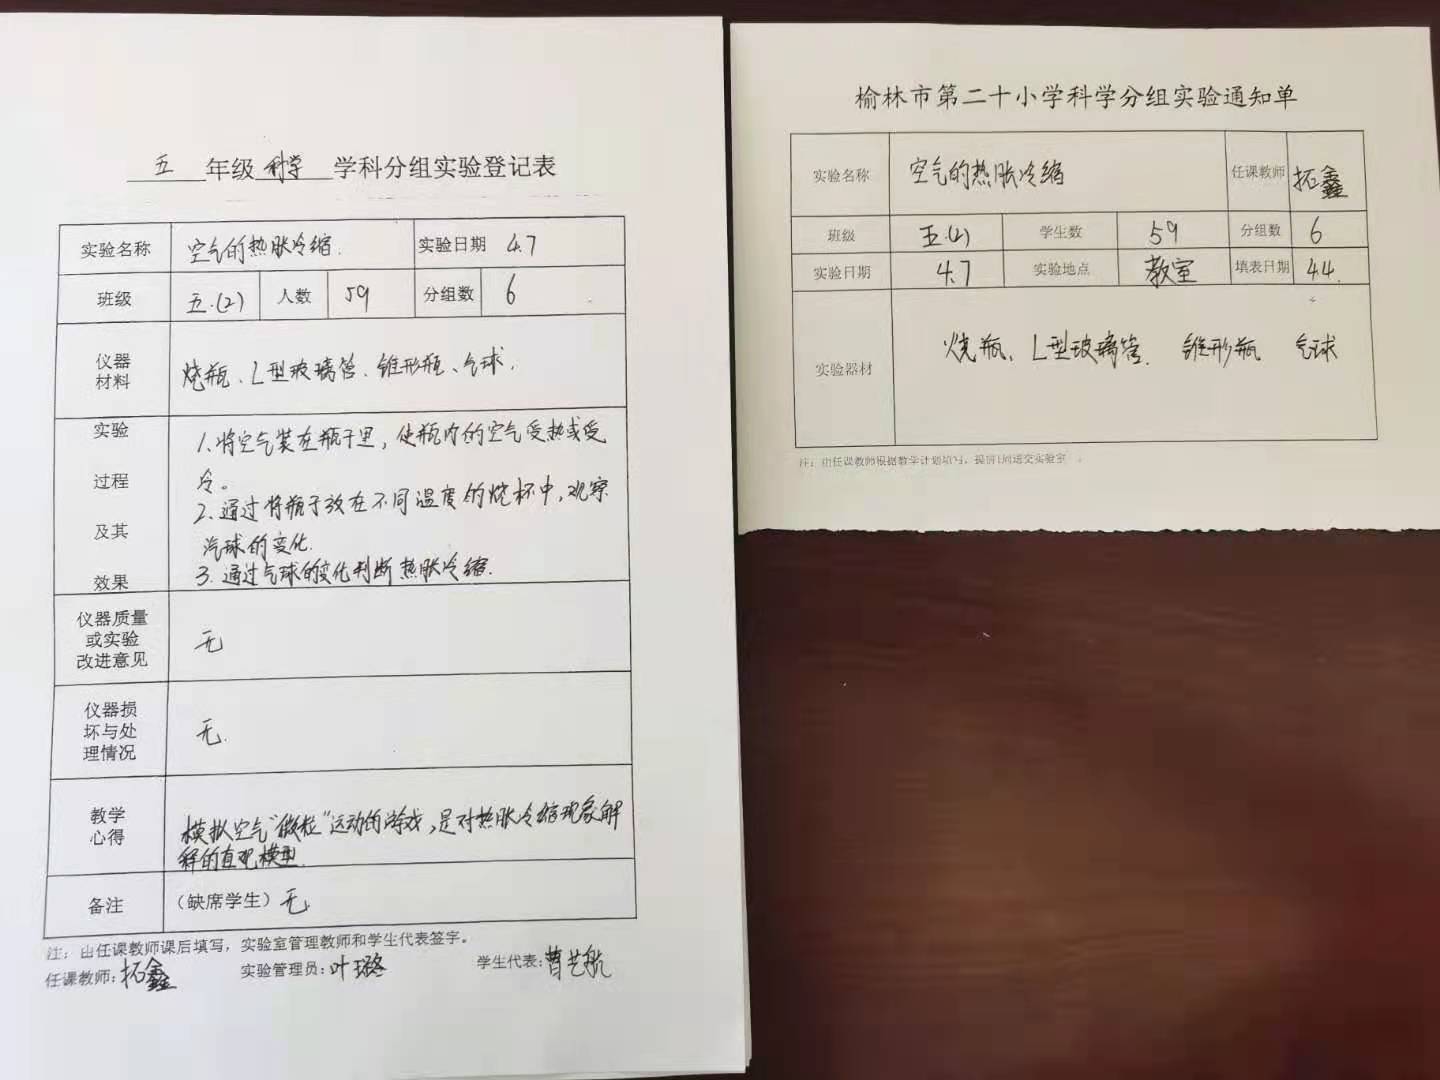 五 年级 科学 学科分组实验登记表
实验名称 空气的热胀冷缩. 实验日期 4.7
班级 五.(2) 人数 59 分组数 6
仪器
材料
烧瓶、L型玻璃管、锥形瓶、气球.
实验
过程
及其
效果
1.将空气装在瓶子里，使瓶内的空气受热或受
冷。
2.通过将瓶子放在不同温度的烧杯中，观察
汽球的变化.
3.通过气球的变化判断热胀冷缩.
仪器质量
或实验
改进意见
无
仪器损
坏与处
理情况
无.
教学
心得
模拟空气"微粒"运动的游戏，是对热胀冷缩现象解
释的直观模型.
备注 (缺席学生) 无
注：由任课教师课后填写，实验室管理教师和学生代表签字。
任课教师：拓鑫 实验管理员：叶璐 学生代表：曹艺航
榆林市第二十小学科学分组实验通知单
实验名称 空气的热胀冷缩 任课教师 拓鑫
班级 五.(2) 学生数 59 分组数 6
实验日期 4.7 实验地点 教室 填表日期 4.4.
实验器材 烧瓶、L型玻璃管. 锥形瓶 气球
注：由任课教师根据教学计划填写，提前1周送交实验室 。